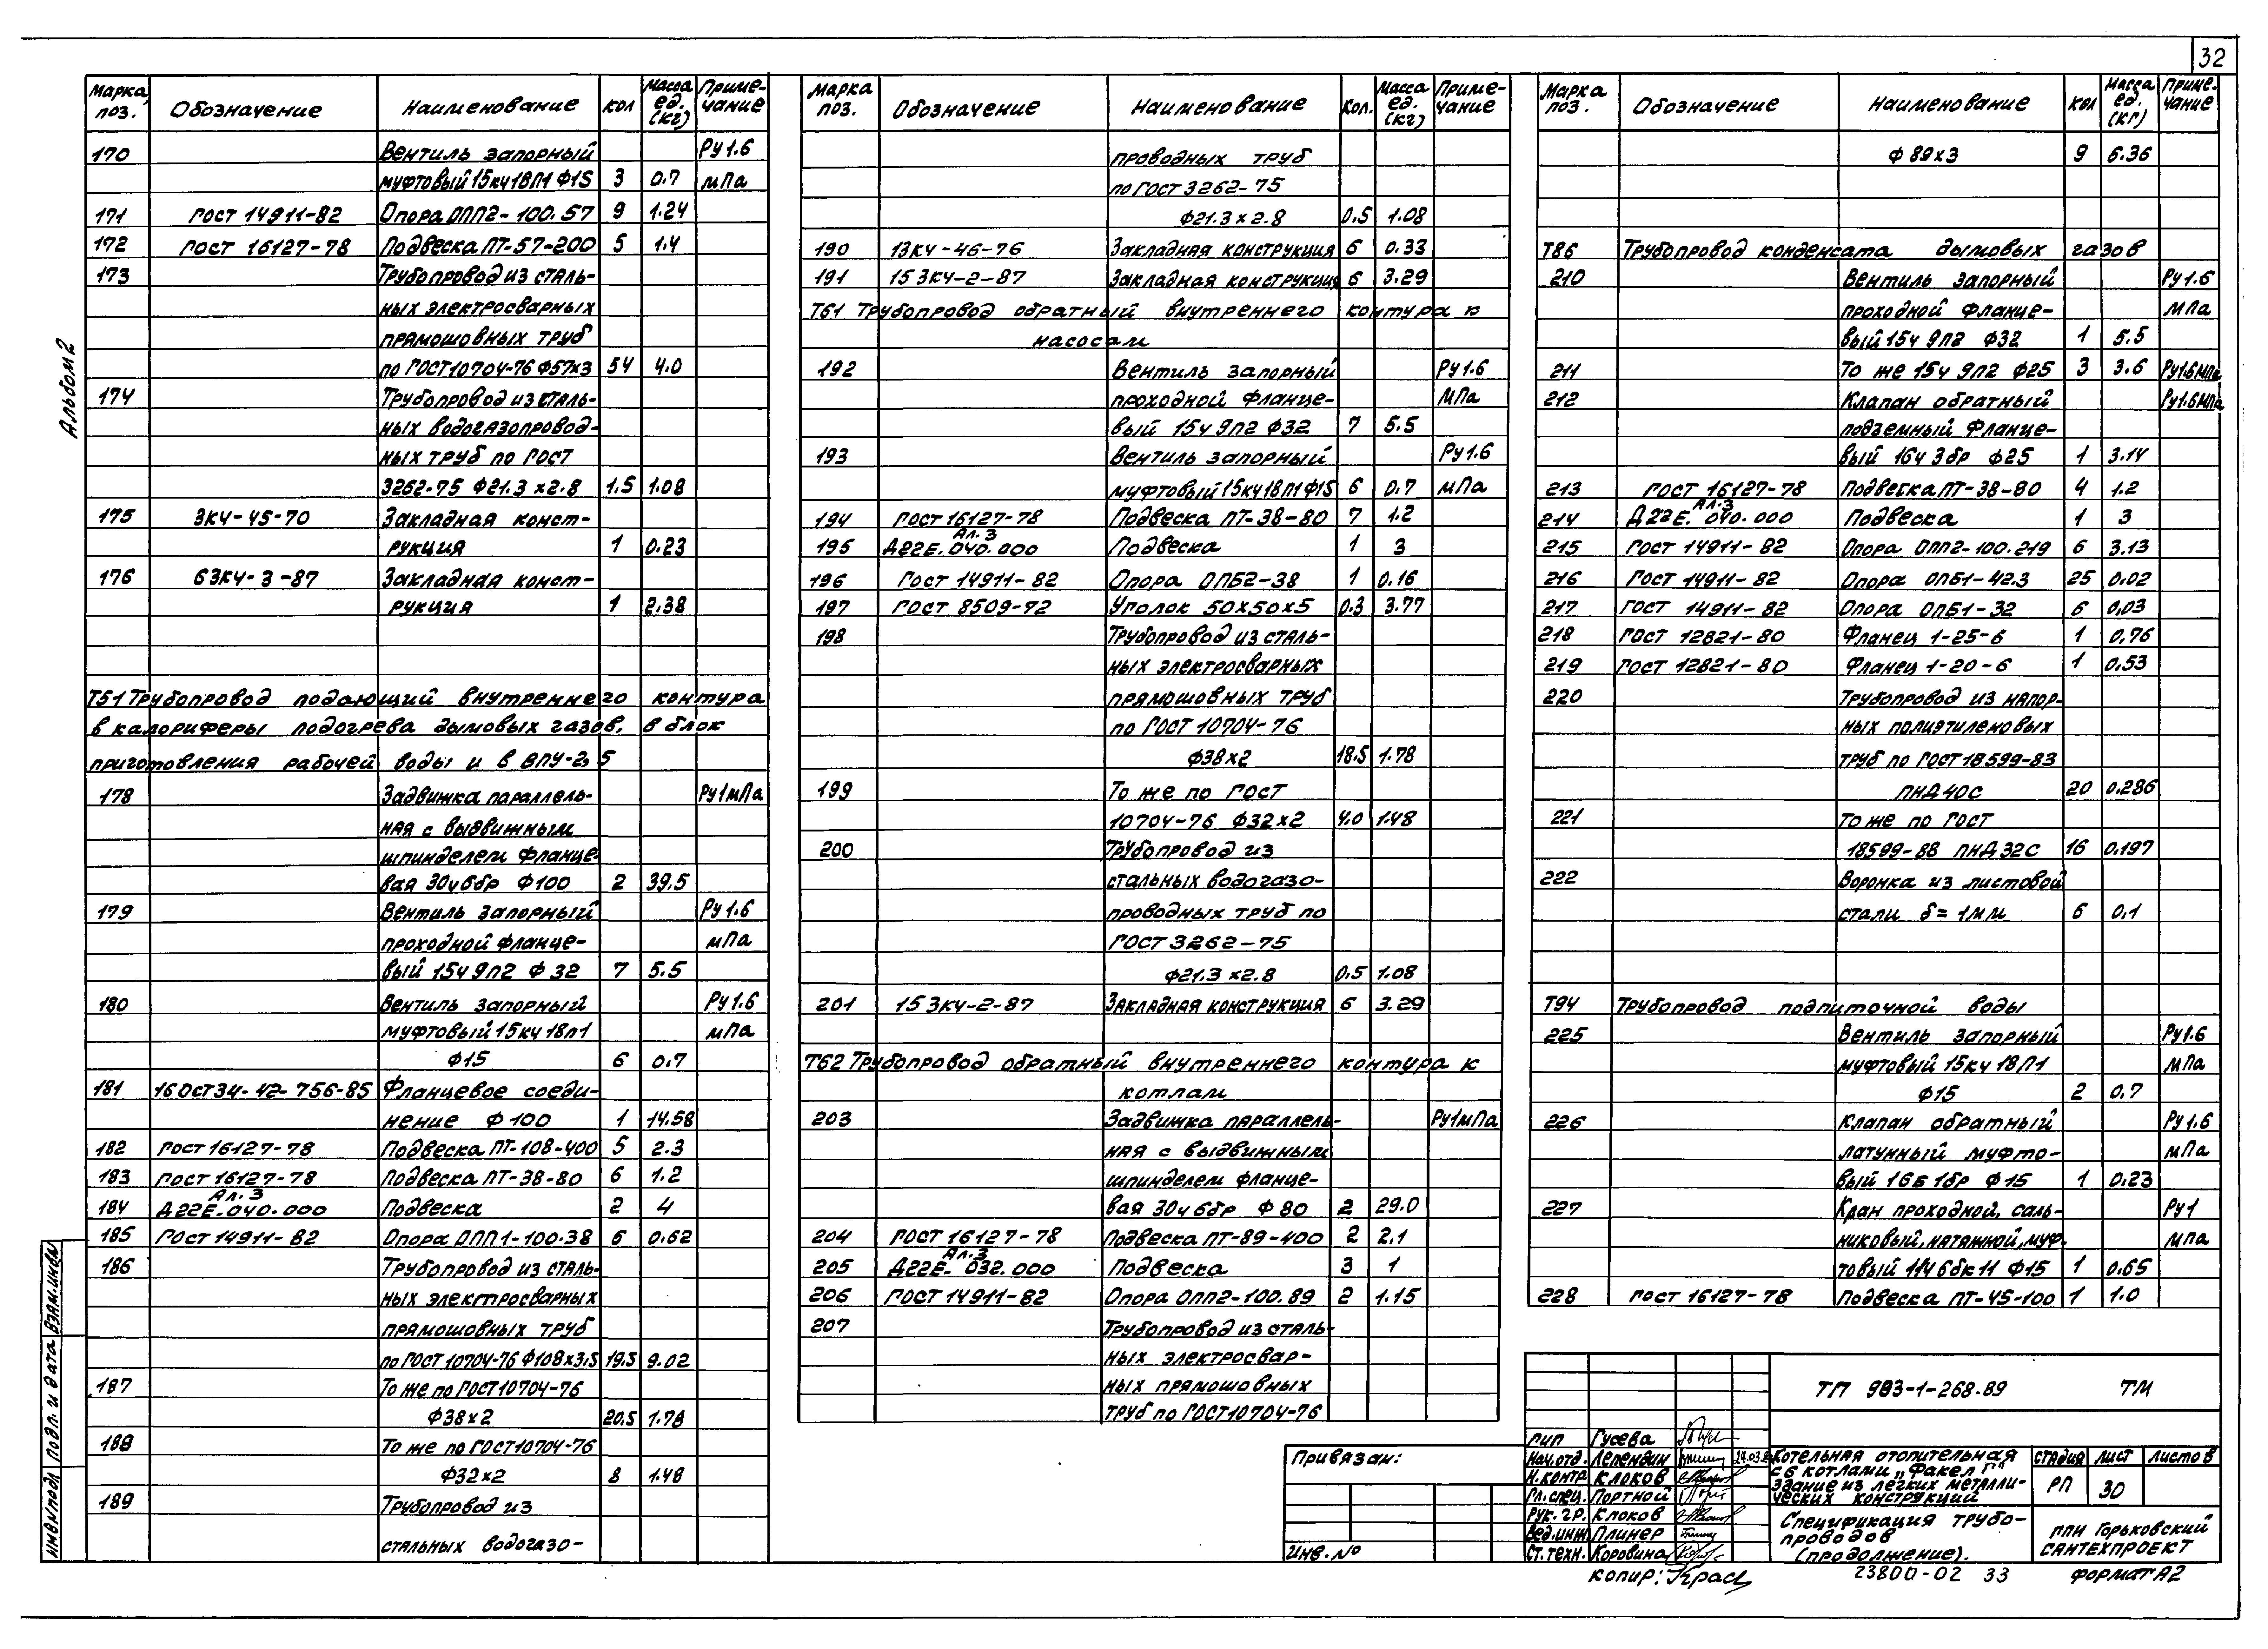 32
Альбом 2
Марка поз. Обозначение Наименование кол Масса ед. (кг) Приме-чание
170 Вентиль запорный Ру1.6
муфтовый 15кч18П1 Ф15 3 0.7 мПа
171 ГОСТ 14911-82 Опора ОПП2-100.57 9 1.24
172 ГОСТ 16127-78 Подвеска ПТ-57-200 5 1.4
173 Трубопровод из сталь-
ных электросварных
прямошовных труб
по ГОСТ10704-76 Ф57х3 54 4.0
174 Трубопровод из сталь-
ных водогазопровод-
ных труб по ГОСТ
3262-75 Ф21.3 х2.8 1.5 1.08
175 ЗКЧ-45-70 Закладная конст-
рукция 1 0.23
176 6ЗКЧ-3-87 Закладная конст-
рукция 1 2.38
Т51 Трубопровод подающий внутреннего контура
в калориферы подогрева дымовых газов, в блок
приготовления рабочей воды и в ВПУ-2,5
178 Задвижка параллель- Ру1мПа
ная с выдвижным
шпинделем фланце-
вая 30ч6бр Ф100 2 39.5
179 Вентиль запорный Ру1.6
проходной фланце- мПа
вый 15ч9п2 Ф32 7 5.5
180 Вентиль запорный Ру1.6
муфтовый 15кч18п1 мПа
Ф15 6 0.7
181 16 ОСТ34-42-756-85 Фланцевое соеди-
нение Ф100 1 14.58
182 ГОСТ 16127-78 Подвеска ПТ-108-400 5 2.3
183 ГОСТ 16127-78 Подвеска ПТ-38-80 6 1.2
184 Д22Е.040.000 Ал.3 Подвеска 2 4
185 ГОСТ 14911-82 Опора ОПП1-100.38 6 0.62
186 Трубопровод из сталь-
ных электросварных
прямошовных труб
по ГОСТ 10704-76 Ф108х3,5 19.5 9.02
187 То же по ГОСТ10704-76
Ф38х2 20.5 1.78
188 То же по ГОСТ10704-76
Ф32х2 8 1.48
189 Трубопровод из
стальных водогазо-
Марка поз. Обозначение Наименование Кол. Масса ед. (кг) Приме-чание
проводных труб
по ГОСТ 3262-75
Ф21.3 х 2.8 0.5 1.08
190 13КЧ-46-76 Закладная конструкция 6 0.33
191 15 ЗКЧ-2-87 Закладная конструкция 6 3.29
Т61 Трубопровод обратный внутреннего контура к
насосам
192 Вентиль запорный Ру1.6
проходной фланце- МПа
вый 15ч9п2 Ф32 7 5.5
193 Вентиль запорный Ру1.6
муфтовый 15кч18П1 Ф15 6 0.7 мПа
194 ГОСТ 16127-78 Подвеска ПТ-38-80 7 1.2
195 Д22Е.040.000 Ал.3 Подвеска 1 3
196 ГОСТ 14911-82 Опора ОПБ2-38 1 0.16
197 ГОСТ 8509-72 Уголок 50х50х5 0.3 3.77
198 Трубопровод из сталь-
ных электросварных
прямошовных труб
по ГОСТ 10704-76
Ф38х2 18.5 1.78
199 То же по ГОСТ
10704-76 Ф32х2 4.0 1.48
200 Трубопровод из
стальных водогазо-
проводных труб по
ГОСТ 3262-75
Ф21.3 х2.8 0.5 1.08
201 15 ЗКЧ-2-87 Закладная конструкция 6 3.29
Т62 Трубопровод обратный внутреннего контура к
котлам
203 Задвижка параллель- Ру1мПа
ная с выдвижным
шпинделем фланце-
вая 30ч6бр Ф80 2 29.0
204 ГОСТ 16127-78 Подвеска ПТ-89-400 2 2.1
205 Д22Е.032.000 Ал.3 Подвеска 3 1
206 ГОСТ 14911-82 Опора ОПП2-100.89 2 1.15
207 Трубопровод из сталь-
ных электросвар-
ных прямошовных
труб по ГОСТ10704-76
Марка поз. Обозначение Наименование кол Масса ед. (кг) Приме-чание
Ф 89х3 9 6.36
Т86 Трубопровод конденсата дымовых газов
210 Вентиль запорный Ру1.6
проходной фланце- МПа
вый 15ч9п2 Ф32 1 5.5
211 То же 15ч9п2 Ф25 3 3.6 Ру1.6мПа
212 Клапан обратный Ру1.6мПа
подземный фланце-
вый 16ч3бр Ф25 1 3.14
213 ГОСТ 16127-78 Подвеска ПТ-38-80 4 1.2
214 Д22Е.040.000 Ал.3 Подвеска 1 3
215 ГОСТ 14911-82 Опора ОПП2-100.219 6 3.13
216 ГОСТ 14911-82 Опора ОПБ1-42.3 25 0.02
217 ГОСТ 14911-82 Опора ОПБ1-32 6 0.03
218 ГОСТ 12821-80 Фланец 1-25-6 1 0.76
219 ГОСТ 12821-80 Фланец 1-20-6 1 0.53
220 Трубопровод из напор-
ных полиэтиленовых
труб по ГОСТ18599-83
ПНД 40С 20 0.286
221 То же по ГОСТ
18599-88 ПНД 32С 16 0.197
222 Воронка из листовой
стали δ= 1мм 6 0.1
Т94 Трубопровод подпиточной воды
225 Вентиль запорный Ру1.6
муфтовый 15кч18П1 мПа
Ф15 2 0.7
226 Клапан обратный Ру1.6
латунный муфто- мПа
вый 16Б1бр Ф15 1 0.23
227 Кран проходной, саль- Ру1
никовый, натяжной, муф- мпа
товый 11ч6бк11 Ф15 1 0.65
228 ГОСТ 16127-78 Подвеска ПТ-45-100 1 1.0
Взам.инв№
Подп. и дата
Инв№подл
Привязан:
Инв.№
ТП 903-1-268.89 ТМ
ГИП Гусева
Нач.отд. Лепендин
Н.контр Клоков
Гл.спец. Портной
Рук.гр. Клоков
Вед.инж Плинер
Ст.техн. Коровина
Котельная отопительная
с 6 котлами „Факел Г"
Здание из легких металли-
ческих конструкций
Стадия Лист Листов
РП 30
Спецификация трубо-
проводов
(продолжение).
ППИ Горьковский
Сантехпроект
копир:
23800-02 33
формат А2